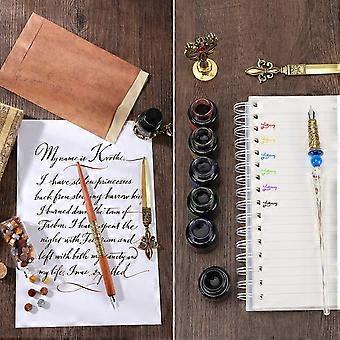 My name is Kvothe.
I have stolen princesses
back from sleeping barrow kings
I burned down the town of
Trebon. I have spent the
night with Felurian and
left with both my sanity and
my life. I was expelled